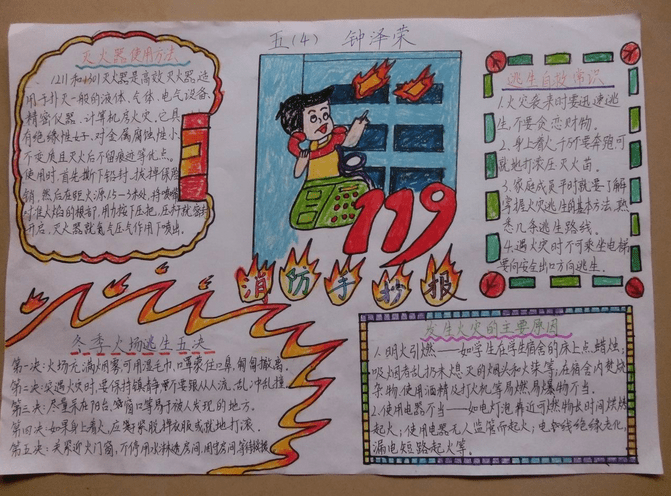 五(4) 钟泽荣
灭火器使用方法
1211和1301灭火器是高效灭火器,适
用于扑灭一般的液体、气体、电气设备、
精密仪器、计算机房火灾。它具
有绝缘性好,对金属腐蚀性小,
不变质且灭火后不留痕迹等优点。
使用时,首先撕下铅封,拔掉保险
销,然后在距火源1.5-3米处,将喷嘴
对准火焰的根部,用力按下压把,压
开启,灭火器就氮气压气作用下喷出。
119
消防手抄报
逃生自救常识
1.火灾袭来时要迅速逃
生,不要贪恋财物。
2.身上着火,千万不要奔跑可
就地打滚压灭火苗。
3.家庭成员平时就要了解
掌握火灾逃生的基本方法,熟
悉几条逃生路线。
4.遇火灾时不可乘坐电梯
要向安全出口方向逃生。
冬季火场逃生五决
第一决:火场充满烟雾,可用湿毛巾、口罩蒙住口鼻,匍匐撤离。
第二决:突遇火灾时,要保持镇静,千不要跟从人流、乱冲乱撞。
第三决:尽量呆在阳台、窗口等易于被人发现的地方。
第四决:如果身上着火,应赶紧脱掉衣服或就地打滚。
第五决:关紧近火门窗,不停用水淋透房间,固守房间等待救援。
发生火灾的主要原因
1.明火引燃——如学生在学生宿舍的床上点蜡烛;
吸烟者乱扔未熄灭的烟头和火柴等,在宿舍内焚烧
杂物,使用酒精及打火机等易燃易爆物不当。
2.使用电器不当——如电灯泡靠近可燃物长时间烘烤
起火;使用电器无人监管而起火;电导线绝缘老化,
漏电短路起火等。